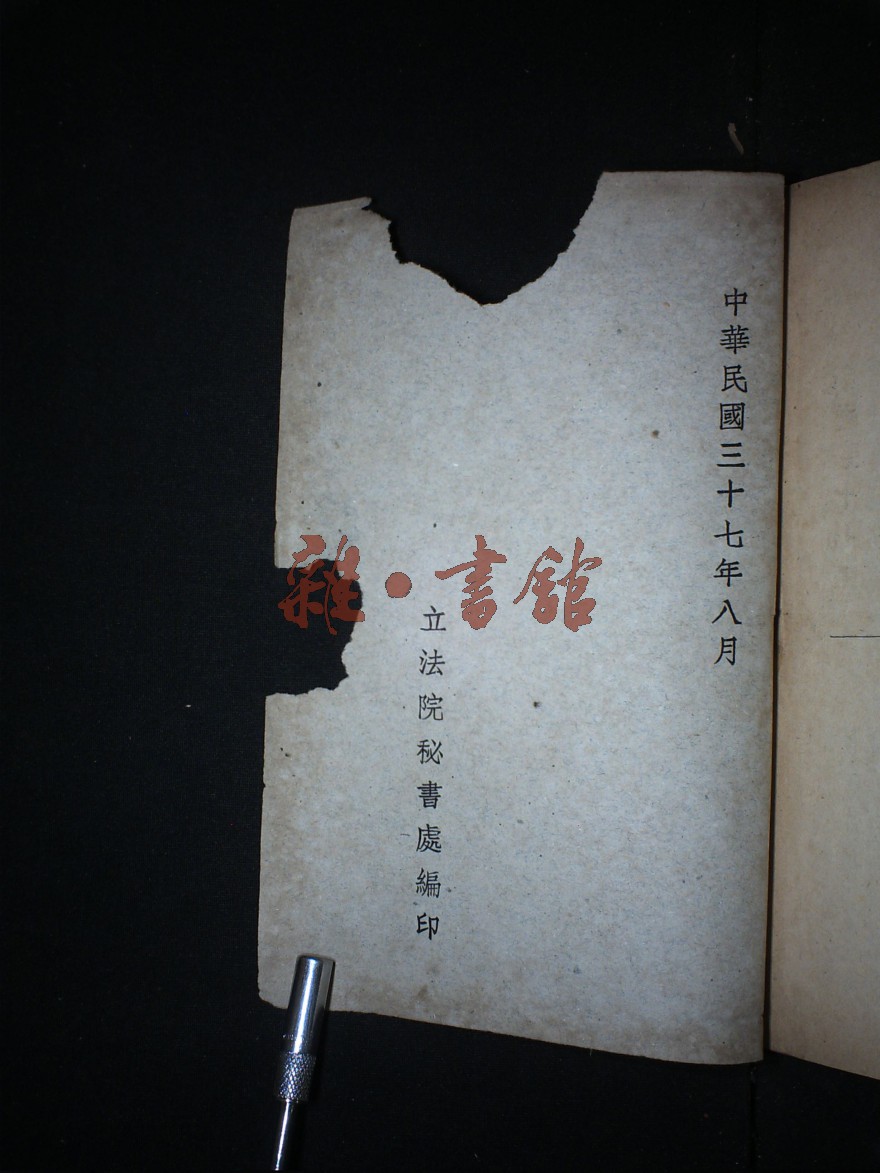 中華民國三十七年八月
立法院秘書處編印
雜·書館